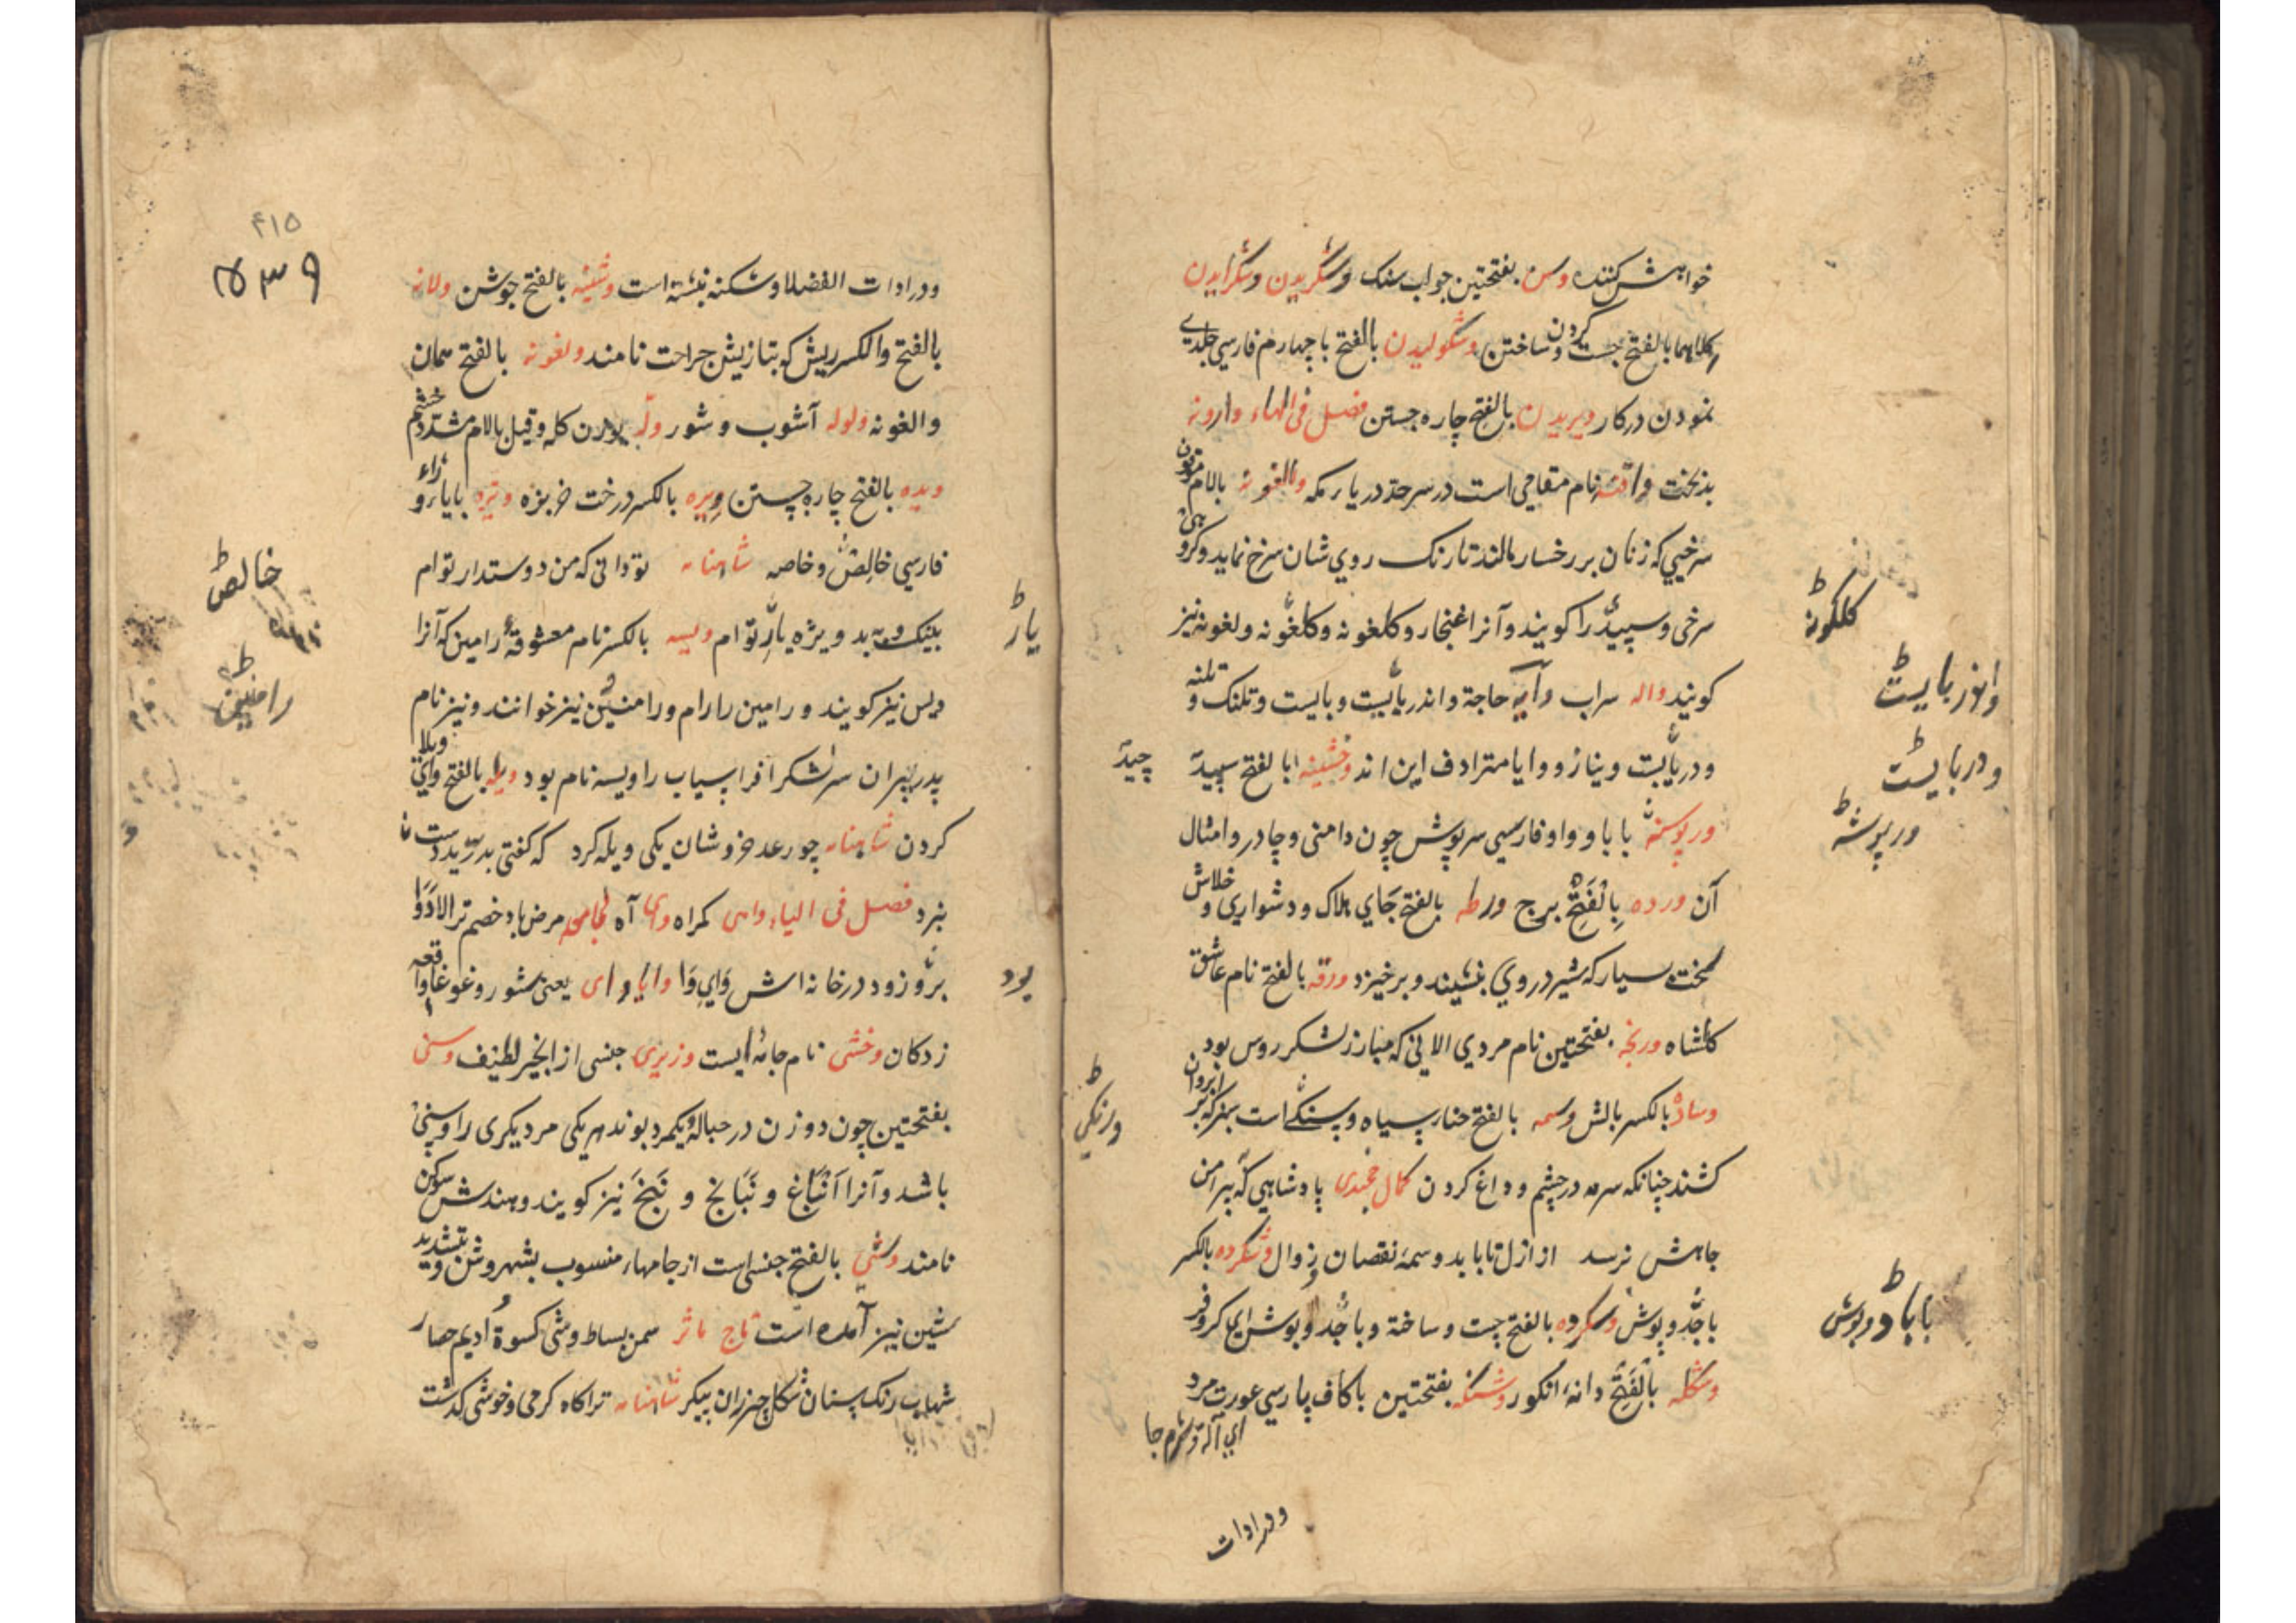 خواهش کننده وسن بفتحتین جواب سنک وشکریدن وشکرایدن
کلاهما بالفتح جست کردن و ساختن وشکولیدن بالفتح با چهارم فارسی جلدی
نمودن در کار ویریدن بالفتح چاره جستن فصل فی الهاء وارونه
بدبخت نام مقامی است در سرحد دریا مکه والغونه بالام موقوف
سرخیی که زنان بر رخسار مالند تا رنک روی شان سرخ نماید وکروهی
سرخی و سپیدی را کویند و آنرا غنجار و کلغونه و کلغونه و لغونه نیز
کویند واله سراب وآیه حاجة و اندربایست و بایست و تلنک و تلنه
و دربایست و نیاز و وایا مترادف این اند وخشینه بالفتح سپید
ورپوشنه با با و واو فارسی سرپوش چون دامنی و چادر و امثال
آن ورده بِالْفَتْحِ برج ورطه بالفتح جای هلاک و دشواری و خلاش
سخت بسیار که شیر در وی نشیند و برخیزد ورقه بالفتح نام عاشق
کلشاه ورنجه بفتحتین نام مردی الانی که مبارز لشکر روس بود
وساده بالکسر بالش وسمه بالفتح حنا سیاه و سنکی است سبز که بر ابروان
کشند چنانکه سرمه در چشم و داغ کردن کمال خجندی پادشاهی که پیرامن
جاهش نرسد از ازل تا بابد وسمهٔ نقصان و زوال وشکرده بالکسر
باجد و پوش وسکرده بالفتح چست و ساخته و باجد و پوش ای کروفر
وشکله بِالْفَتْحِ دانهٔ انکور وشنکه بفتحتین با کاف پارسی عورت مرد
ای آلة شرم جا
ودر ادات
کلکونه
واندربایست
ودربایست
ورپوشنه
باباد وبوش
۴۱۵
۵۳۹
ودر ادات الفضلا وشکنه نبشته است وشینه بالفتح جوشن ولانه
بالفتح والکسر ریش که بتازیش جراحت نامند ولغونه بالفتح همان
والغونه ولوله آشوب و شور وله بوزن کله و قیل بالام مشدد خشم
ویده بالفتح چاره جستن ویره بالکسر درخت خربزه ویژه بایاء و زاء
فارسی خالص و خاصه شاهنامه تو دانی که من دوستدار توام
بنیک و به بد ویژه یار توام ویسه بالکسر نام معشوقهٔ رامین که آنرا
ویس نیز کویند و رامین را رام و رامنین نیز خوانند و نیز نام
پدر پیران سرلشکر افراسیاب را ویسه نام بود ویله بالفتح وای ویلا
کردن شاهنامه چو رعد خروشان یکی ویله کرد که کفتی بدرید دشت
نبرد فصل فی الیاء واهی کمراه وای آه مرض باد خصم ترا لادوا
برو زود در خانه اش وای وا وایا وای یعنی شور و غوغا واقعه
زدکان وخشی نام جامهٔ ایست وزیری جنسی از انجیر لطیف وسنی
بفتحتین چون دو زن در حبالهٔ یکمرد بوند هر یکی مر دیکری را وسنی
باشد و آنرا اَنْبَاغ و نَبَانج و نَبَخ نیز کویند و هندش سوکن
نامند وشی بالفتح جنسی است از جامهاء منسوب بشهر وش و بتشدید
شین نیز آمده است تاج مآثر سمن بساط وشی کسوة ادیم حصار
شهاب رنک سنان شکل خیزران پیکر شاهنامه تراکاه کرمی و خوشی کذشت
یار
چید
بود
ورنکی
خالص
رامنین